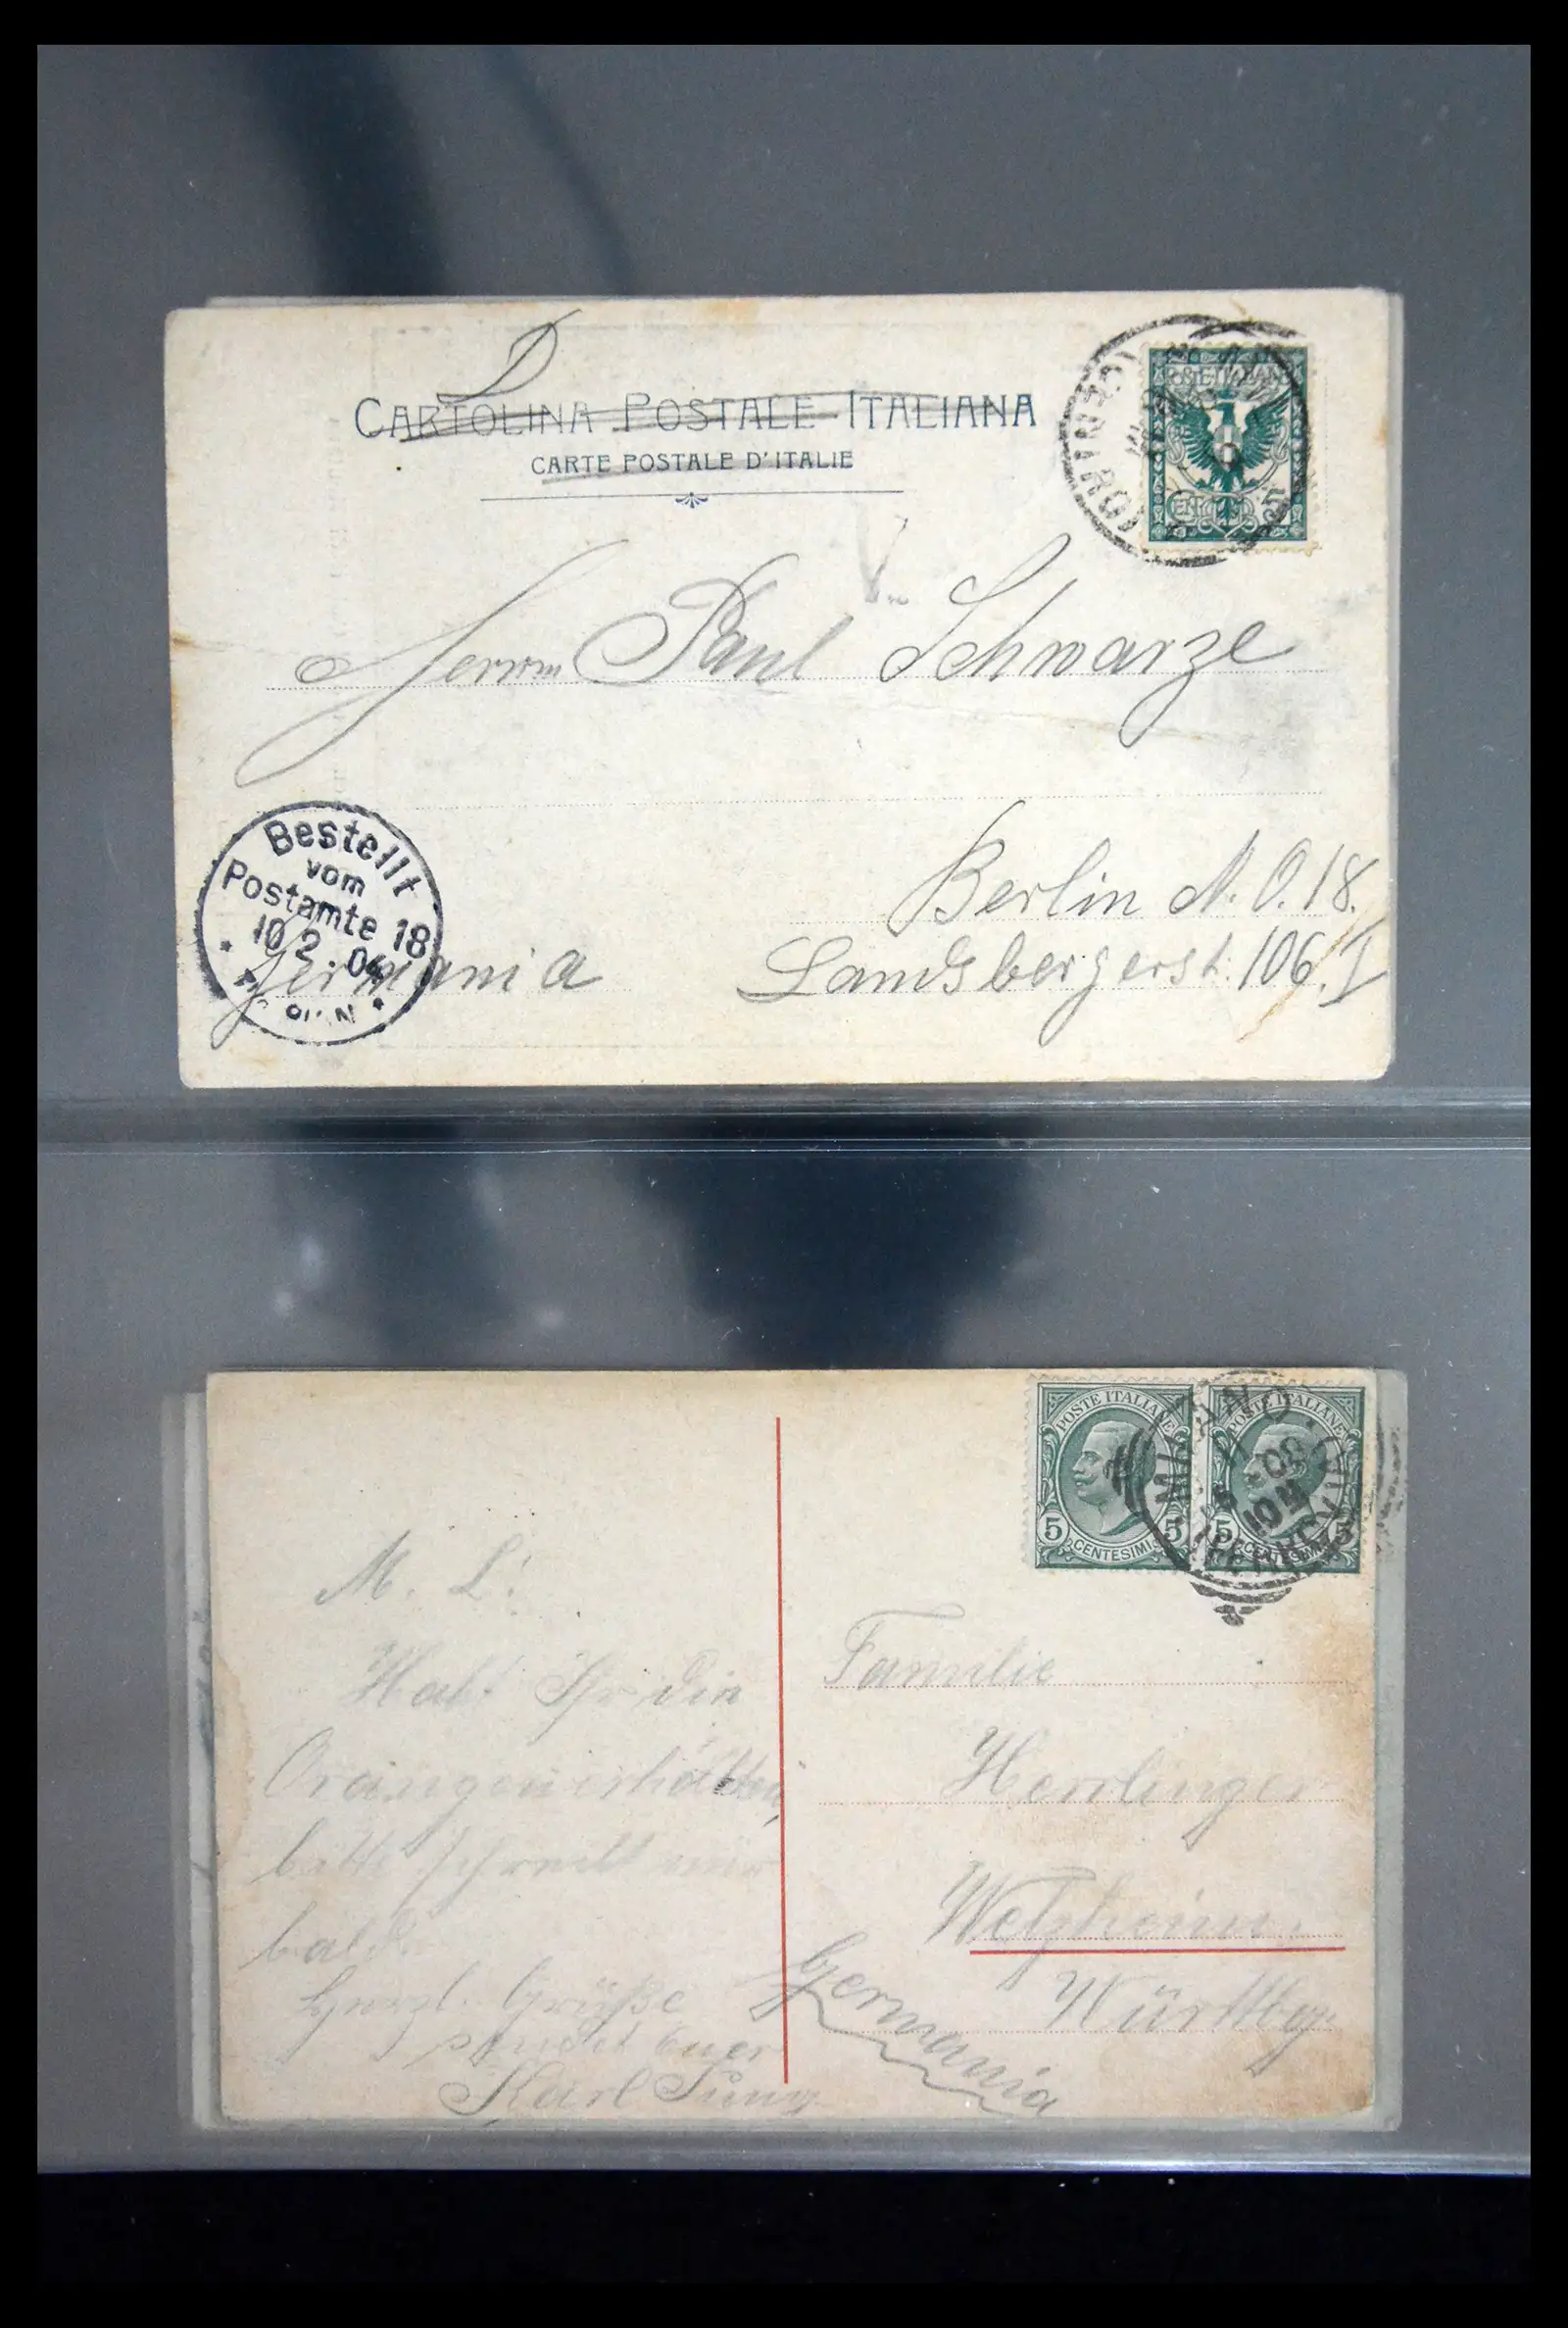 D
CARTOLINA POSTALE ITALIANA
CARTE POSTALE D'ITALIE
POSTE ITALIANE
CENT. 5
TORINO
Herrn Paul Schwarze
Berlin N.O. 18.
Landsbergerst. 106. I
Germania
Bestellt
vom
Postamte 18
10 2 04
POSTE ITALIANE
5 CENTESIMI 5
POSTE ITALIANE
5 CENTESIMI 5
MILANO
M. L!
Habt Ihr die
Orangen erhalten,
bitte schreibt mir
bald.
Herzl. Grüße
sendet Euer
Karl
Familie
Herrlinger
Welzheim.
Württbg.
Germania